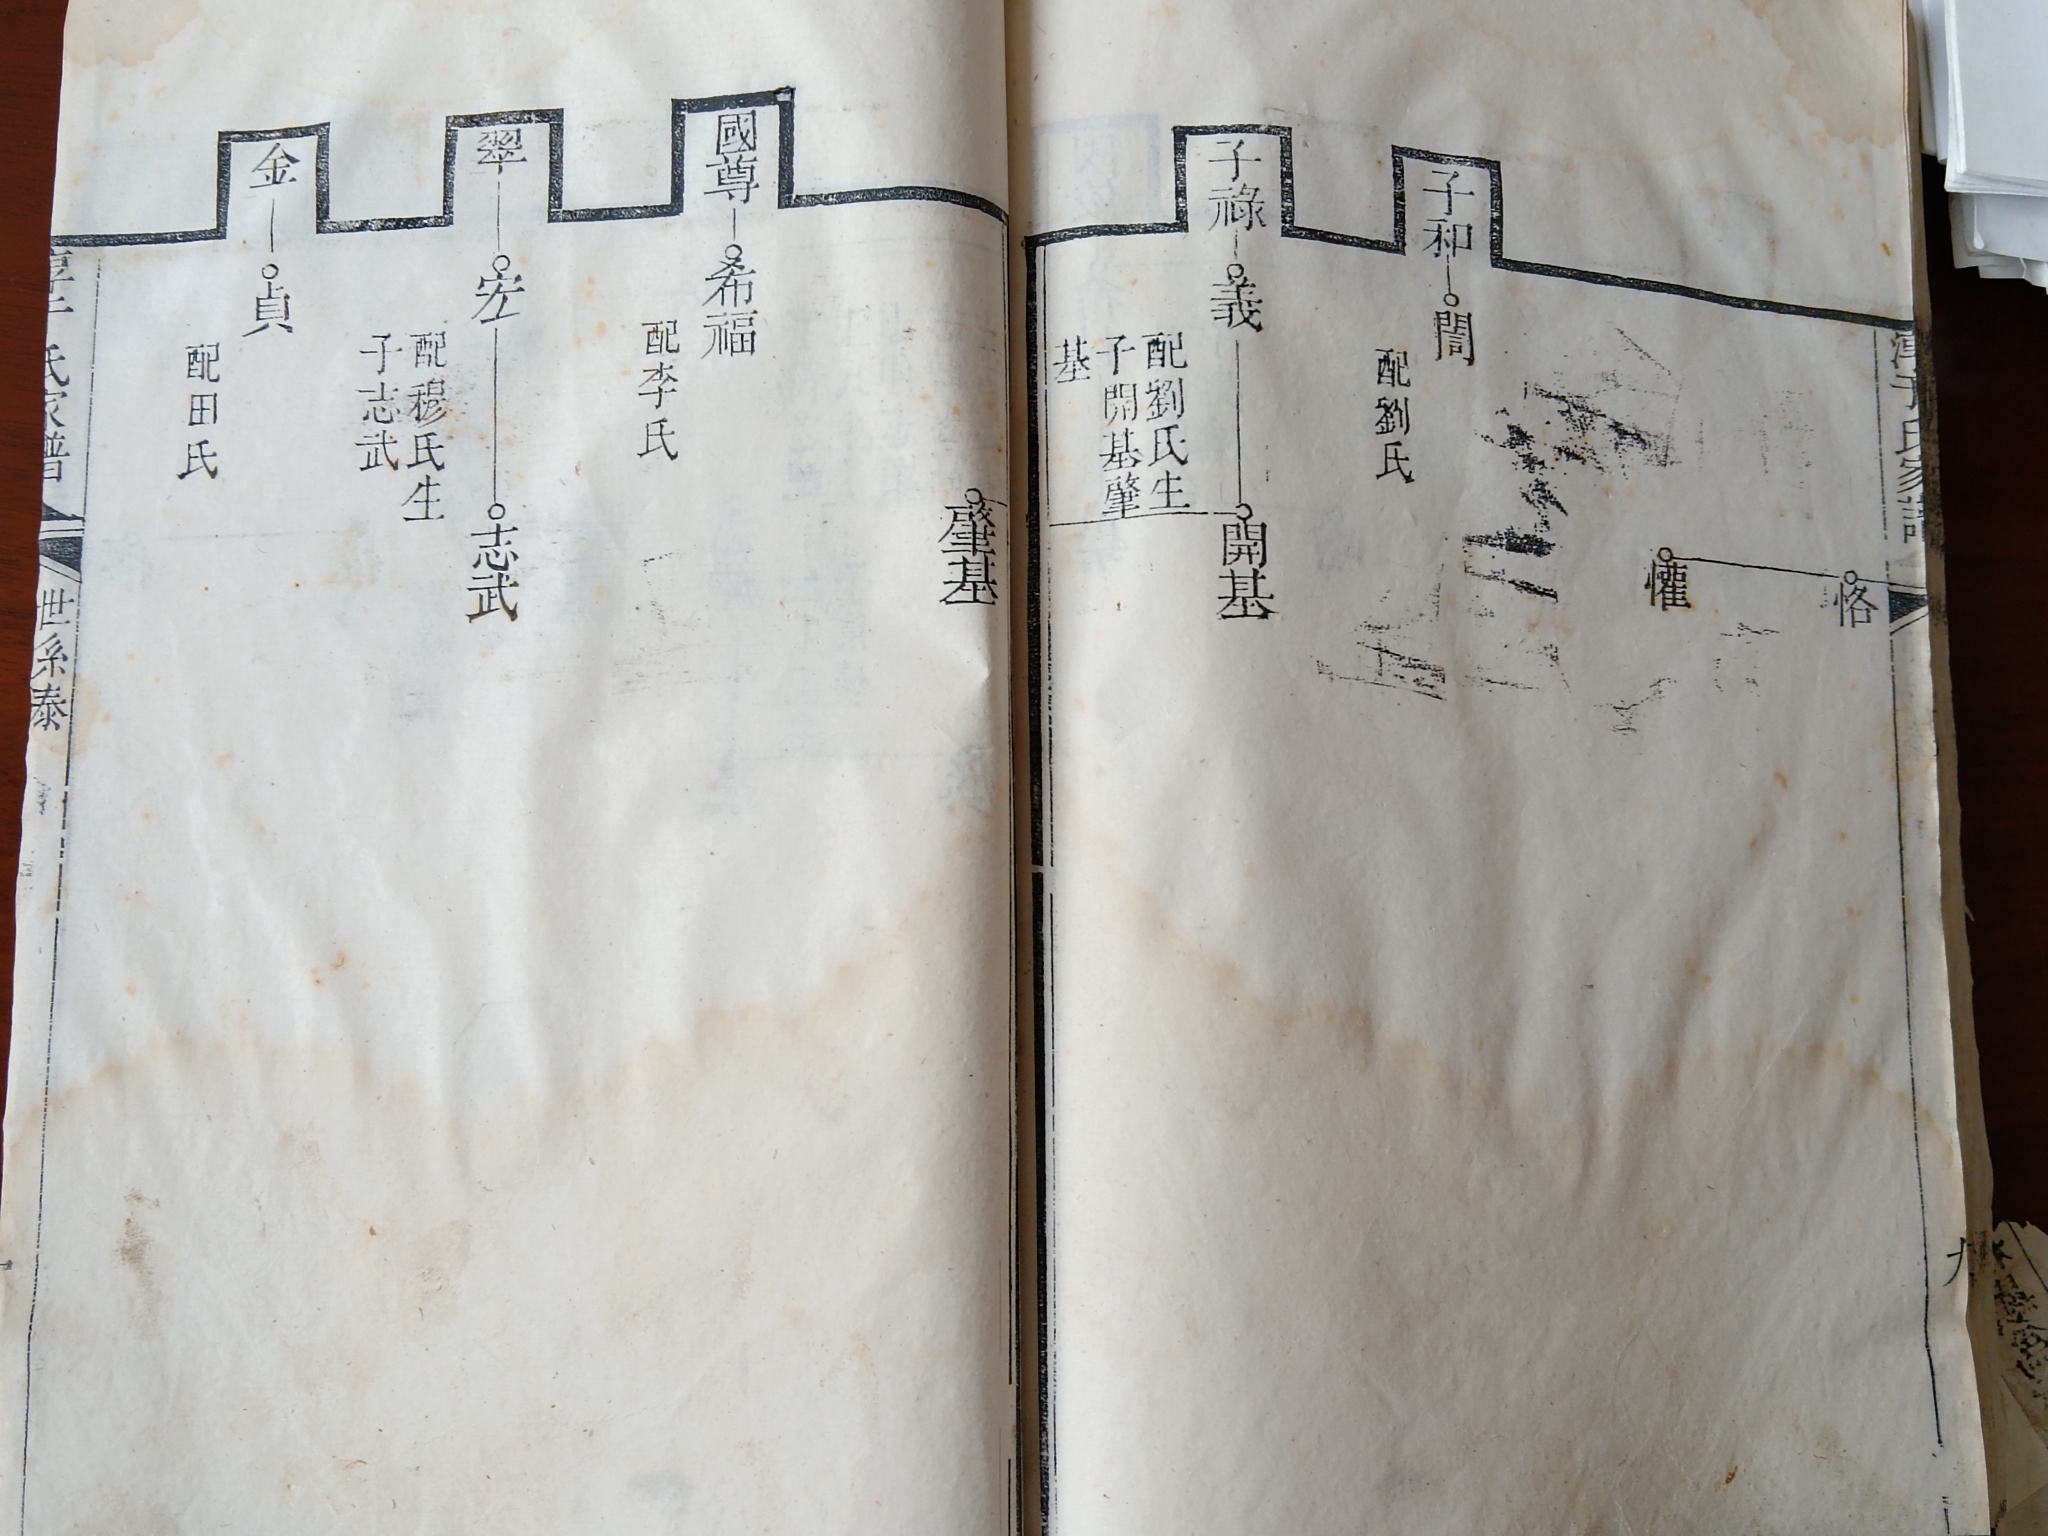 淳于氏家譜
九
恪
懽
子和
誾
配劉氏
子祿
義
配劉氏生
子開基肇
基
開基
肇基
國尊
希福
配李氏
翠
宏
配穆氏生
子志武
志武
金
貞
配田氏
淳于氏家譜
世系泰